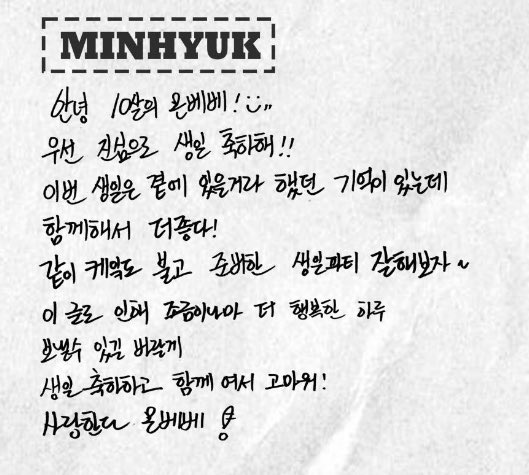 MINHYUK
안녕 10살의 몬베베!
우선 진심으로 생일 축하해!!
이번 생일은 곁에 있을거라 했던 기억이 있는데
함께해서 더좋다!
같이 케익도 불고 준비한 생일파티 잘해보자~
이 글로 인해 조금이나마 더 행복한 하루
보낼수 있길 바랄게
생일 축하하고 함께 여서 고마워!
사랑한다 몬베베